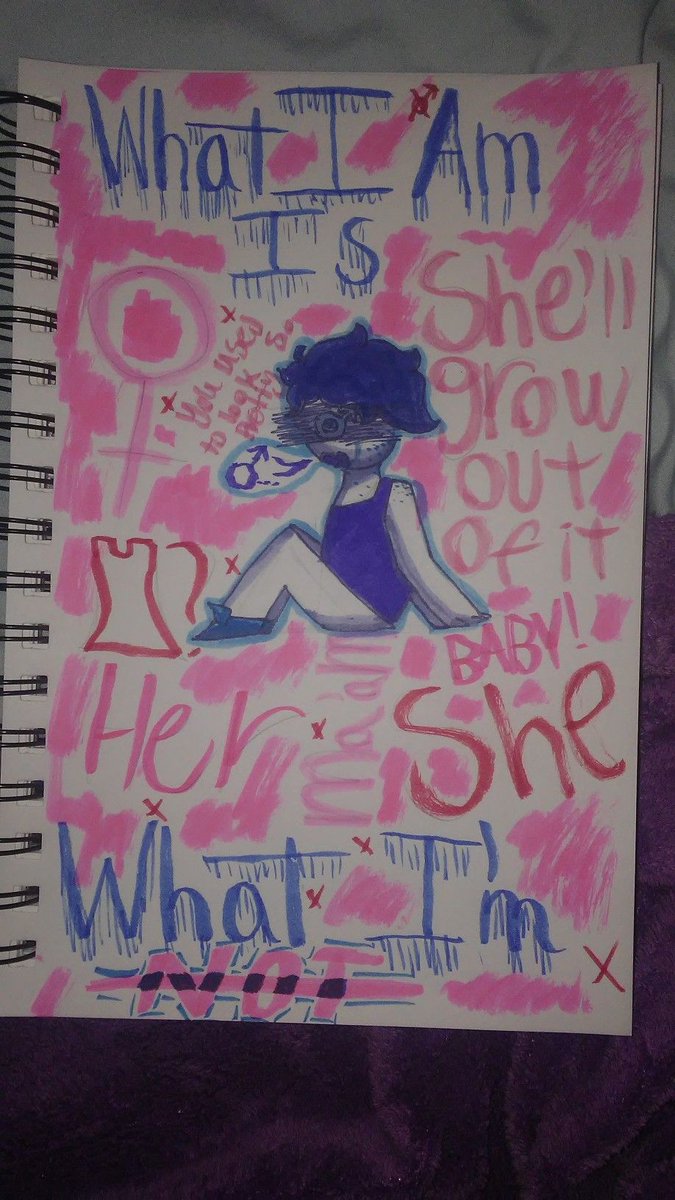 What I Am
Is
She'll
grow
out
of it
BABY!
You used
to look
pretty so.
?
Her
Ma'am
She
What I'm
NOT